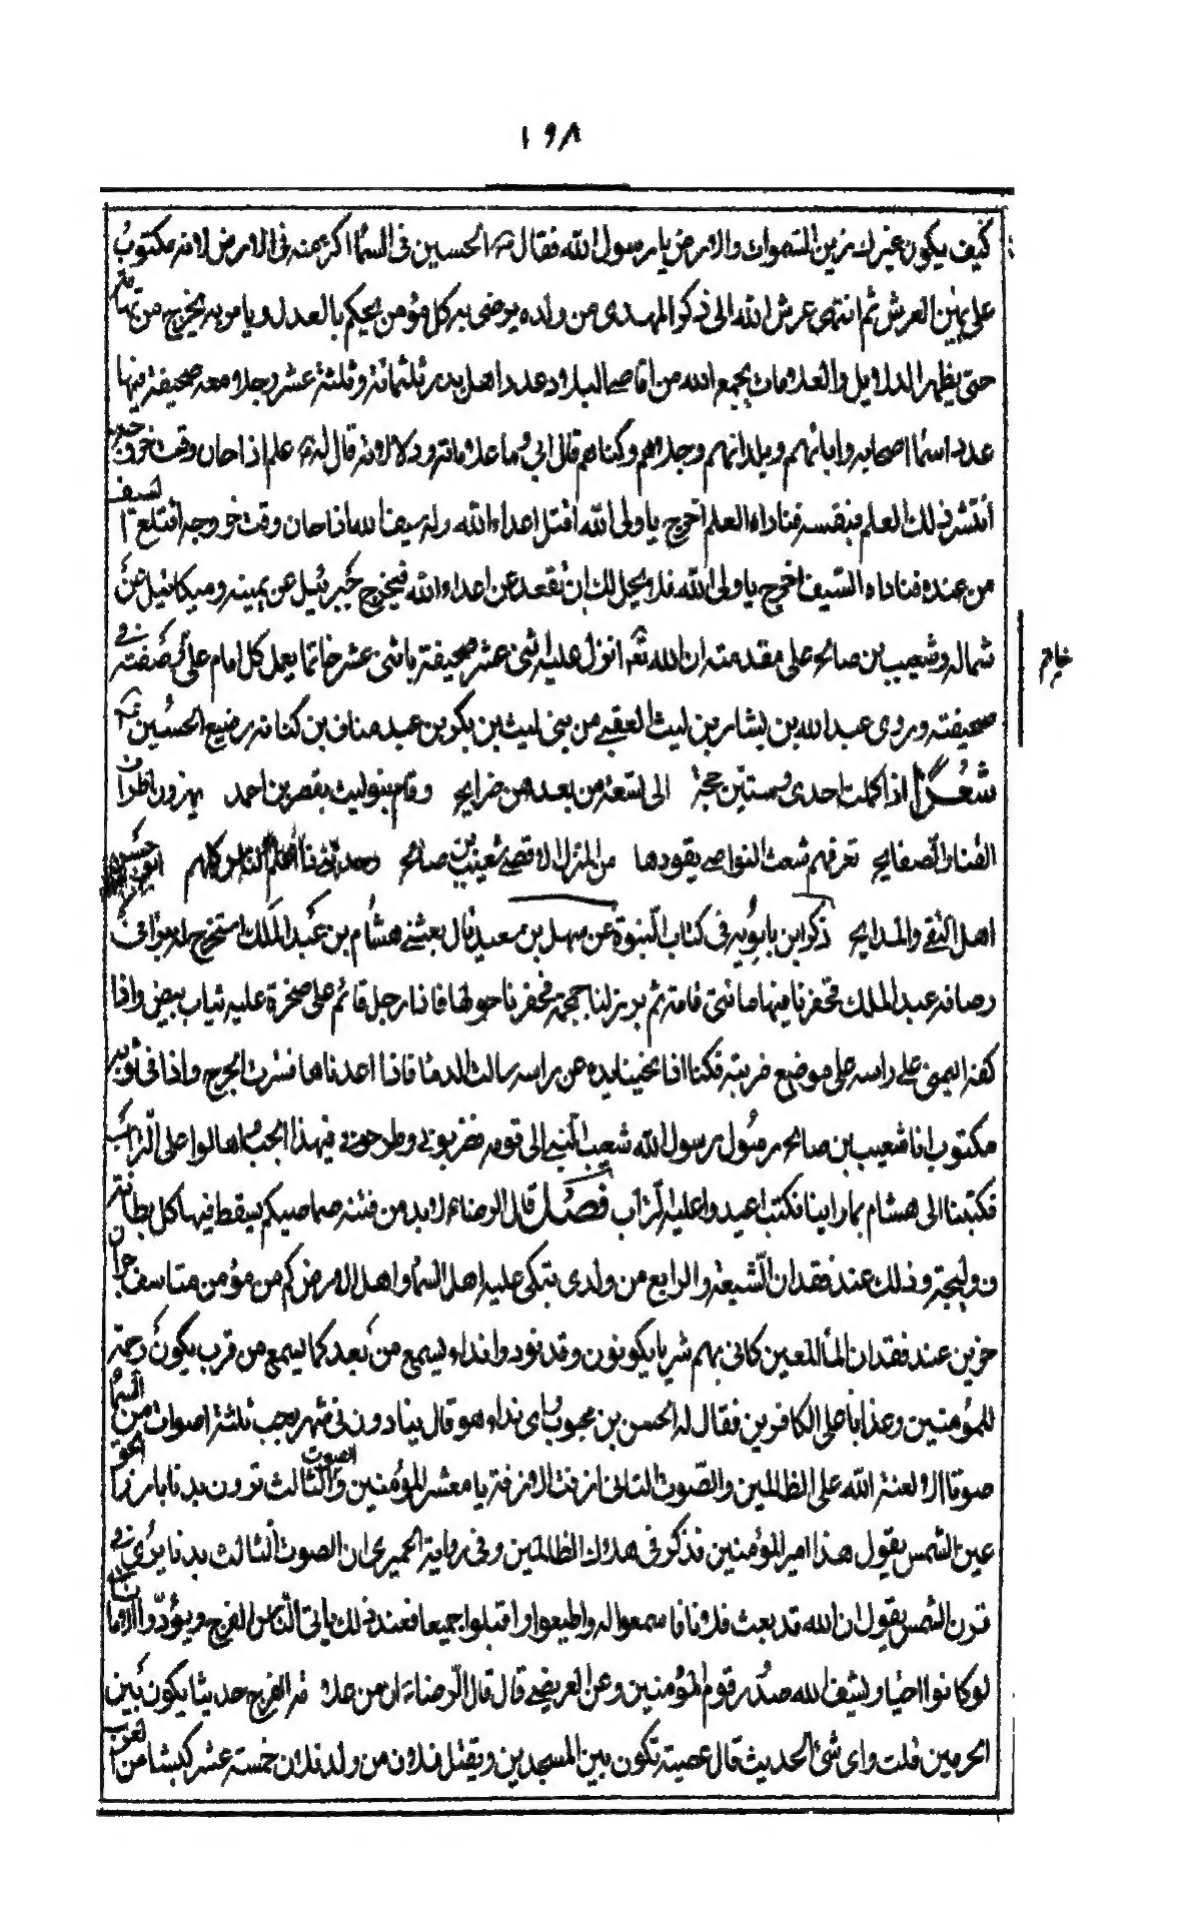 ١٩٨
كيف يكون غيرك زين السموات والارض يا رسول الله فقال الحسين فى السما اكبر منه فى الارض لانه مكتوب
على يمين العرش ثم انتهى عرش الله الى ذكر المهدى من ولده يرضى به كل مؤمن يحكم بالعدل ويامر به يخرج من تهامة
حتى يظهر الدلايل والعلامات يجمع الله من اقاصى البلاد عدد اهل بدر ثلثمائة وثلثة عشر رجلا معه صحيفة فيها
عدد اسما اصحابه وابائهم وبلدانهم وحلاهم وكناهم قال ابى وما علاماته ودلالاته قال له علم اذا حان وقت خروجه
انتشر ذلك العلم بنفسه فناداه العلم اخرج يا ولى الله اقتل اعداء الله وله سيف الله اذا حان وقت خروجه اقتلع السيف
من عنده فناداه السيف اخرج يا ولى الله فلا يحل لك ان تقعد عن اعداء الله فيخرج جبرئيل عن يمينه وميكائيل عن
شماله وشعيب بن صالح على مقدمته ان الله انزل عليه اثنى عشر صحيفة باثنى عشر خاتما يعمل كل امام على صفته فى
خاتم
صحيفته وروى عبد الله بن بشار بن ليث العقبى من بنى ليث بن بكر بن عبد مناف بن كنانه رضيع الحسين
شعر اذا كملت احدى وستين حجة الى تسعة من بعدهن ضرايح وقام بنو ليث بقصر بن احمد يهزون اطراف
القنا والصفايح تعرفهم شعث النواصى يقودها من المنزل الاقصى شعيب بن صالح
اهل التقى والمدايح ذكر ابن بابويه فى كتاب النبوة عن سهل بن سعيد قال بعثنى هشام بن عبد الملك استخرج له بئرا فى
رصافه عبد الملك فحفرنا فيها مائتى قامة ثم برز لنا جمجمه فحفرنا حولها فاذا رجل قائم على صخرة عليه ثياب بيض واذا
كفه اليمنى على راسه على موضع ضربته فكنا اذا نحينا يده عن راسه سالت الدما فاذا اعدناها فسرت الجرح واذا فى ثوبه
مكتوب انا شعيب بن صالح رسول رسول الله شعيب النبى الى قومه فضربونى وطرحونى فى هذا الجب واهالوا على التراب
فكتبنا الى هشام بما راينا فكتب اعيدوا عليه التراب فصل قال الرضا لا بد من فتنة صما صيلم يسقط فيها كل بطانة
ووليجة وذلك عند فقدان الشيعة الرابع من ولدى يبكى عليه اهل السما واهل الارض كم من مؤمن متاسف حران
حزين عند فقدان الماء المعين كانى بهم شر يا يكونون وقد نودوا نداء يسمع من بعد كما يسمع من قرب يكون رحمة
للمؤمنين وعذابا على الكافرين فقال له الحسن بن محبوب اى نداء هو قال ينادون فى شهر رجب ثلثة اصوات من السما
صوتا الا لعنة الله على الظالمين والصوت الثانى ازفت الازفة يا معشر المؤمنين والصوت الثالث ترون بدنا بارزا نحو
عين الشمس يقول هذا امير المؤمنين قد كر فى هلاك الظالمين وفى رواية الحميرى ان الصوت الثالث بدنا يرى فى
قرن الشمس يقول ان الله قد بعث فلانا فاسمعوا له واطيعوا واقبلوا جميعا فعند ذلك ياتى الناس الفرج ويؤد الاموات
لو كانوا احيا ويشف الله صدور قوم المؤمنين وعن العريضى قال قال الرضا ان من علا مة الفرج حديثا يكون بين
الحرمين قلت واى شئ الحديث قال عصبية تكون بين المسجدين ويقتل فلان من ولد فلان خمسة عشر كبشا من العرب